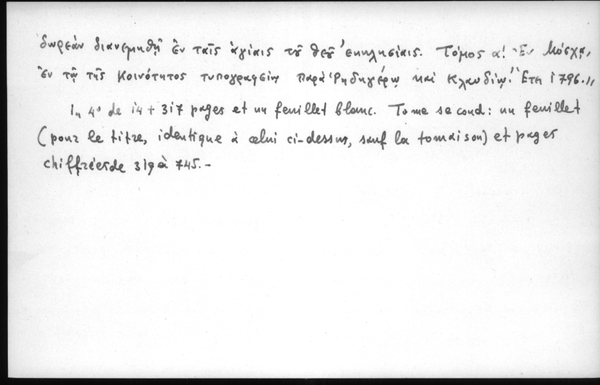 δωρεὰν διανεμηθῇ ἐν ταῖς ἁγίαις τοῦ θεοῦ ἐκκλησίαις. Τόμος α! Ἐν Μόσχᾳ,
ἐν τῷ τῆς Κοινότητος τυπογραφείῳ παρὰ Ῥηδηγέρῳ καὶ Κλαυδίῳ. Ἔτει 1796.,,
In 4° de 14 + 317 pages et un feuillet blanc. Tome second: un feuillet
(pour le titre, identique à celui ci-dessus, sauf la tomaison) et pages
chiffrées de 319 à 745.-